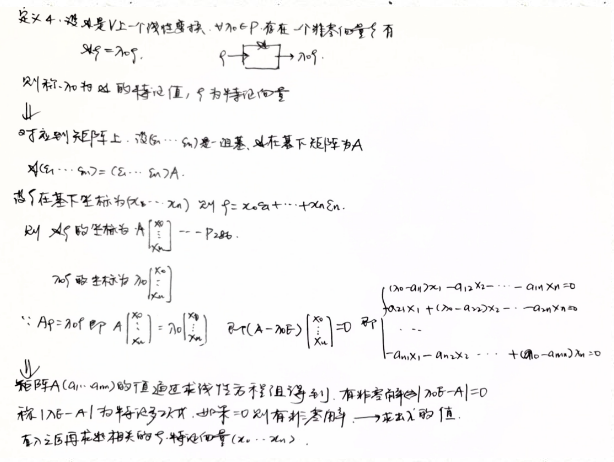 定义4. 设𝒜是V上一个线性变换. ∀λ0∈P. 存在一个非零向量ξ 有
𝒜ξ=λ0ξ. ξ→ 𝒜 →λ0ξ.
则称λ0为𝒜的特征值, ξ为特征向量
⇓
对应到矩阵上. 设(ε1…εn)是一组基. 𝒜在基下矩阵为A
𝒜(ε1…εn)=(ε1…εn)A.
设ξ在基下坐标为(x0…xn) 则 ξ=x0ε1+…+xnεn.
则 𝒜ξ的坐标为 A[x0 ⋮ xn] --- P286.
λ0ξ的坐标为 λ0[x0 ⋮ xn]
∵ Aξ=λ0ξ 即 A[x0 ⋮ xn]=λ0[x0 ⋮ xn] 即(A-λ0E)[x0 ⋮ xn]=0 即
(λ0-a11)x1-a12x2-…-a1nxn=0
-a21x1+(λ0-a22)x2-…-a2nxn=0
…
-an1x1-an2x2-… +(λ0-ann)xn=0
⇓
矩阵A(a11…ann)的值通过求线性方程组得到. 有非零解⇔|λ0E-A|=0
称|λE-A|为特征多项式. 如果=0则有非零解. →求出λ的值.
入之后再求出相关的ξ.特征向量(x0…xn).